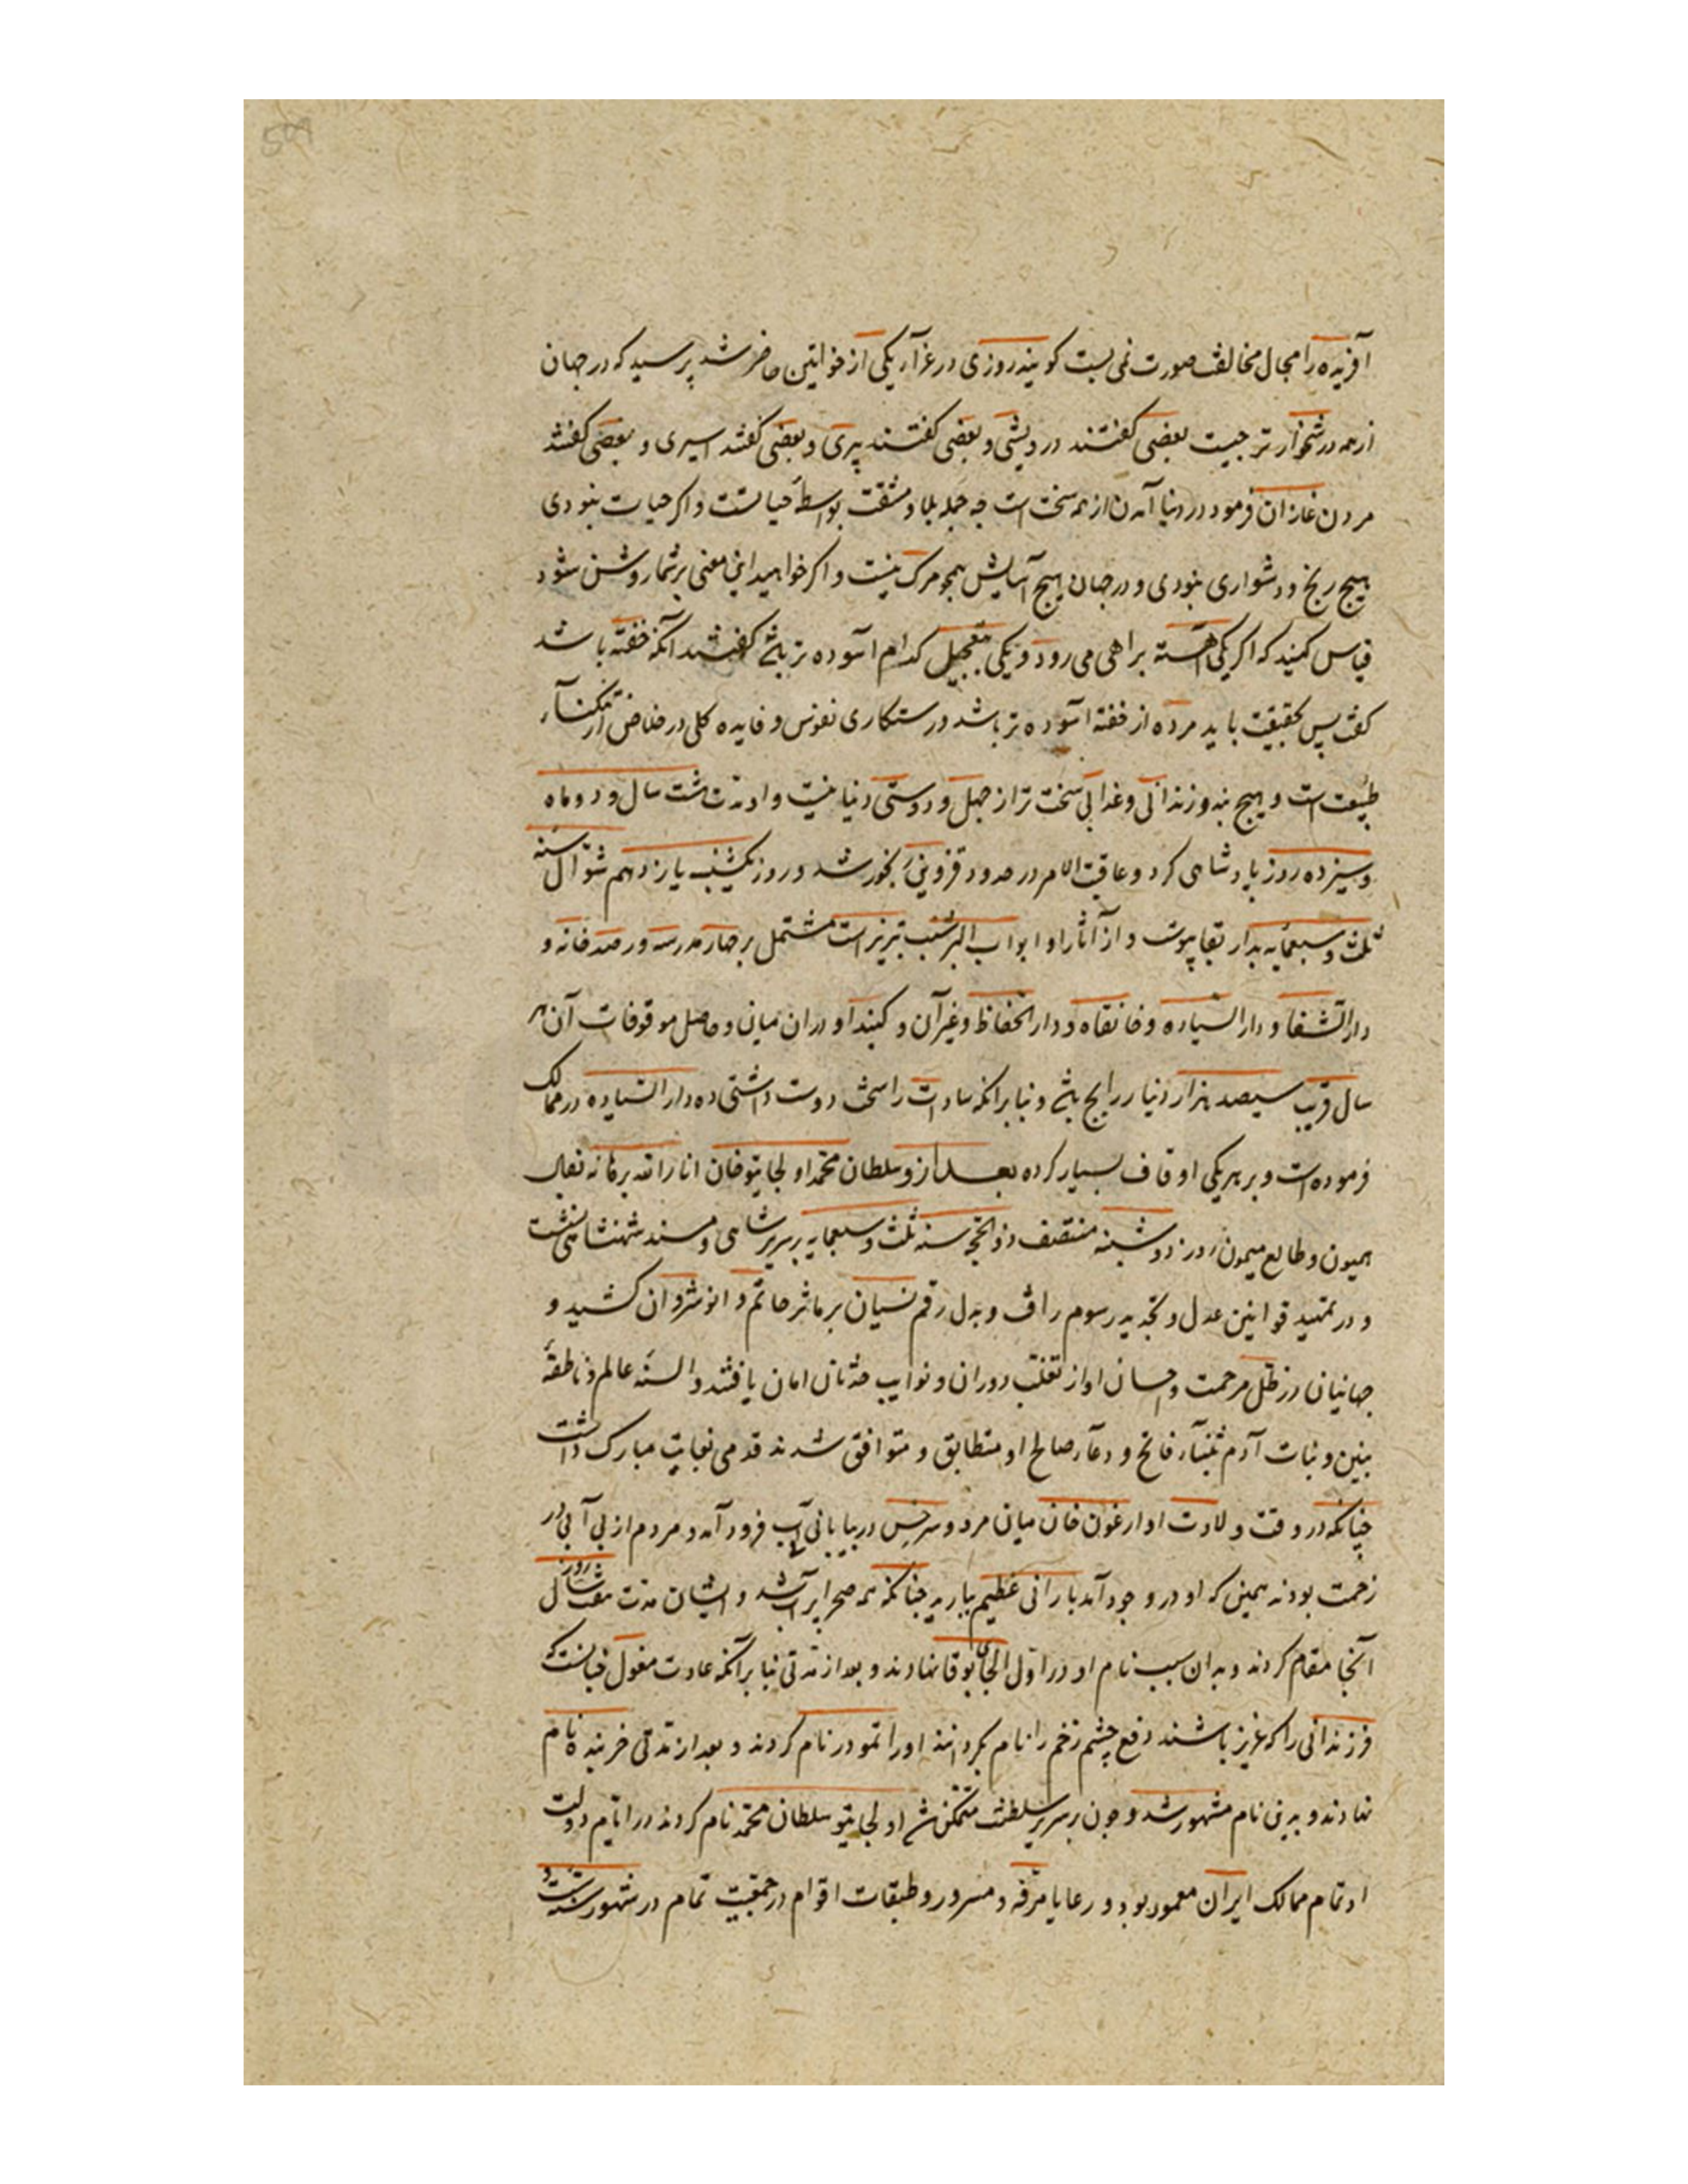 آفریده را مجال مخالفت صورت نمی بست کویند روزی در عزاء یکی از خواتین حاضر شد پرسید که در جهان
از همه دشخوارتر چیست بعضی کفتند درویشی و بعضی کفتند پیری و بعضی کفتند اسیری و بعضی کفتند
مردن غازان فرمود در دنیا آمدن از همه سخت است چه جمله بلا و مشقت بواسطهٔ حیاتست و اکر حیات نبودی
هیچ رنج و دشواری نبودی و در جهان هیچ آسایش همچو مرک نیست و اکر خواهید این معنی بر شما روشن شود
قیاس کنید که اکر یکی آهسته براهی می رود و یکی بتعجیل کدام آسوده تر باشد کفتند آنکه خفته باشد
کفت پس بحقیقت باید مرده از خفته آسوده تر باشد رستکاری نفوس و فایده کلی در خلاص از تنکناء
طبیعت است و هیچ بند و زندانی و عذابی سخت تر از جهل و دوستی دنیا نیست و او مدت هشت سال و دو ماه
و سیزده روز پادشاهی کرد و عاقبة الامر در حدود قزوین رنجور شد و روز یکشنبه یازدهم شوال سنه
ثلث و سبعمایه بدار بقا پیوست و از آثار او ابواب البر شنب تبریز است مشتمل بر چهار مدرسه و رصدخانه و
دار الشفا و دار السیاده و خانقاه و دار الحفاظ و غیر آن و کنبد او در آن میان و حاصل موقوفات آن هر
سال قریب سیصد هزار دینار رایج باشد و بنا برانکه سادات را سخت دوست داشتی ده دار السیاده در ممالک
فرموده است و بر هریکی اوقاف بسیار کرده بعد از و سلطان محمد اولجایتو خان انار الله برهانه بفال
همیون و طالع میمون روز دوشنبه منتصف ذو الحجه سنه ثلث و سبعمایه بر سریر شاهی و مسند شهنشاهی نشست
و در تمهید قوانین عدل و تجدید رسوم رافت و بذل رقم نسیان بر ماثر حاتم و انوشروان کشید و
جهانیان در ظل مرحمت و احسان او از تقلب دوران و نوایب حدثان امان یافتند و السنهٔ عالم و ناطقهٔ
بنین و بنات آدم بثناء فاتح و دعاء صالح او متطابق و متوافق شدند قدمی بغایت مبارک داشت
چنانکه در وقت ولادت او ارغون خان میان مرو و سرخس در بیابانی بی آب فرود آمد و مردم از بی آبی در
زحمت بودند همین که او در وجود آمد بارانی عظیم بباریید چنانکه همه صحرا پر آب شد و ایشان مدت هفت روز
آنجا مقام کردند و بدان سبب نام او در اول الجای بوقا نهادند و بعد از مدتی بنا بر آنکه عادت مغول چنانست که
فرزندانی را که عزیز باشند دفع چشم زخم را نام بکردانند او را تمودر نام کردند و بعد از مدتی خربنده نام
نهادند و بدین نام مشهور شد و چون بر سریر سلطنت متمکن شد اولجایتو سلطان محمد نام کردند در ایام دولت
او تمام ممالک ایران معمور بود و رعایا مرفه و مسرور و طبقات اقوام در جمعیت تمام در شهور سنه